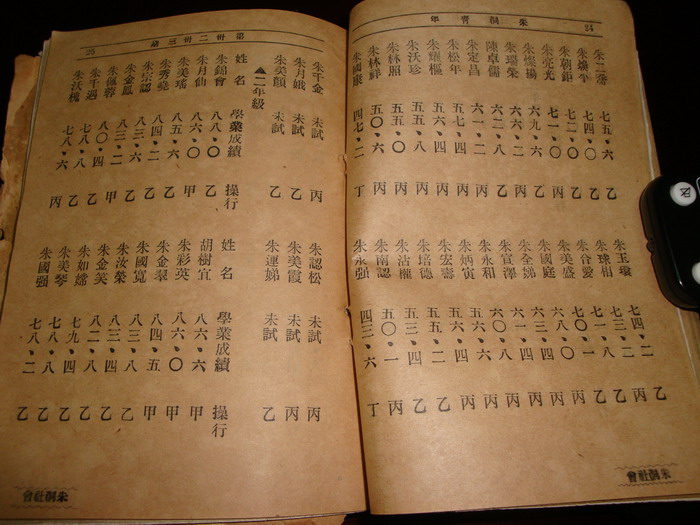 朱洞青年
24
朱二 七五・六 乙
朱 平 七四・〇 乙
朱朝鉅 七二・〇 乙
朱亮光 七一・〇 丙
朱燦揚 六九・六 乙
朱瑞榮 六六・二 丙
陳卓儒 六 乙
朱定昌 六一・二 丙
朱松年 五七・八 丙
朱耀樞 五五・四 丙
朱沃珍 五五・八 丙
朱林照 五五・〇 丙
朱林鮮 五〇・六 丙
朱國康 四七・二 丁
朱玉璇 七四・二 乙
朱球相 七三・二 乙
朱合愛 七一・八 乙
朱美盛 七〇・一 丙
朱國庭 六八・〇 丙
朱全娣 六三・四 丙
朱宣澤 六一・四 丙
朱永和 六〇・八 丙
朱炳寅 五六・六 丙
朱宏壽 五六・四 丙
朱培德 五五・二 乙
朱沾龐 五三・四 乙
朱南認 五〇・一 丙
朱永强 四三・六 丁
朱洞社會
第卅二卅三
25
朱千金 未試 丙
朱月娥 未試 乙
朱美顏 未試 乙
朱認松 未試 丙
朱美霞 未試 丙
朱運娣 未試 乙
▲二年級
姓名 學業成績 操行
朱錦會 八八・〇 乙
朱月仙 八六・〇 甲
朱美瑤 八五・六 乙
朱秀堯 八四・二 乙
朱宗認 八三・六 乙
朱金鳳 八三・二 乙
朱佩蓉 八〇・四 甲
朱千遇 七八・八 乙
朱沃槐 七八・六 丙
姓名 學業成績 操行
胡樹宜 八六・六 甲
朱彩英 八六・〇 甲
朱金翠 八四・五 甲
朱國寬 八三・八 乙
朱汝榮 八三・四 乙
朱金笑 八二・八 乙
朱如嫦 七九・四 乙
朱美琴 七八・八 乙
朱國强 七八・二 乙
朱洞社會